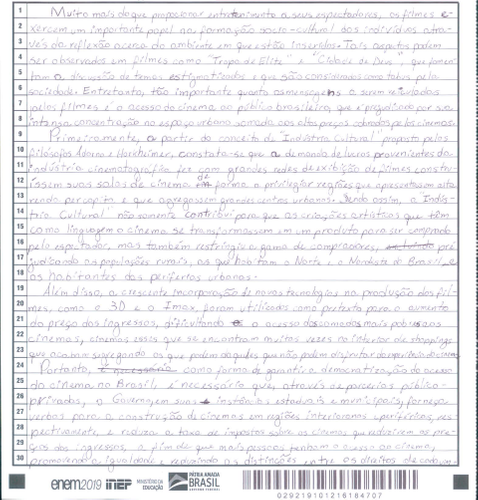 1 Muito mais do que proporcionar entretenimento a seus espectadores, os filmes e-
2 xercem um importante papel na formação socio-cultural dos indivíduos atra-
3 vés da reflexão acerca do ambiente em que estão inseridos. Tais aspectos podem
4 ser observados em filmes como "Tropa de Elite" e "Cidade de Deus", que fomen-
5 tam a discussão de temas estigmatizados e que são considerados como tabus pela
6 sociedade. Entretanto, tão importante quanto as mensagens a serem veiculadas
7 pelos filmes é o acesso do cinema ao público brasileiro, que é prejudicado por sua
8 intensa concentração no espaço urbano somada aos altos preços cobrados pelos cinemas.
9 Primeiramente, a partir do conceito de "Indústria Cultural" proposto pelos
10 filósofos Adorno e Horkheimer, constata-se que a demanda de lucros provenientes da
11 indústria cinematográfica fez com grandes redes de exibição de filmes constru-
12 íssem suas salas de cinema de forma a privilegiar regiões que apresentassem alta
13 renda per capita e que agregassem grandes centros urbanos. Sendo assim, a Indús-
14 tria Cultural" não somente contribui para que as criações artísticas que têm
15 como linguagem o cinema se transformassem em um produto para ser comprado
16 pelo espectador, mas também restringiu a gama de compradores, pre
17 judicando as populações rurais, as que habitam o Norte e o Nordeste do Brasil e
18 os habitantes das periferias urbanas.
19 Além disso, a crescente incorporação de novas tecnologias na produção dos fil-
20 mes, como o 3D e o Imax, foram utilizados como pretexto para o aumento
21 do preço dos ingressos, dificultando o acesso das camadas mais pobres aos
22 cinemas, cinemas esses que se encontram muitas vezes no interior de shoppings
23 que acabam segregando os que podem daqueles que não podem disfrutar da experiência do cinema.
24 Portanto, como forma de garantir a democratização do acesso
25 do cinema no Brasil, é necessário que, através de parcerias público-
26 privadas, o Governo, em suas instâncias estaduais e municipais, forneça
27 verbas para a construção de cinemas em regiões interioranas e periféricas, res-
28 pectivamente e reduza a taxa de impostos sobre os cinemas que reduzirem os pre-
29 ços dos ingressos, a fim de que mais pessoas tenham o acesso ao cinema,
30 promovendo a igualdade e reduzindo as distinções entre os direitos de cada um.
enem2019 INEP MINISTÉRIO DA EDUCAÇÃO PÁTRIA AMADA BRASIL GOVERNO FEDERAL